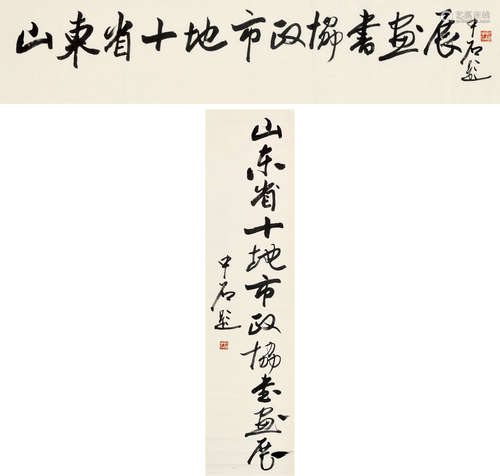 山東省十地市政協書畫展
中石題
山东省十地市政協书畫展
中石题